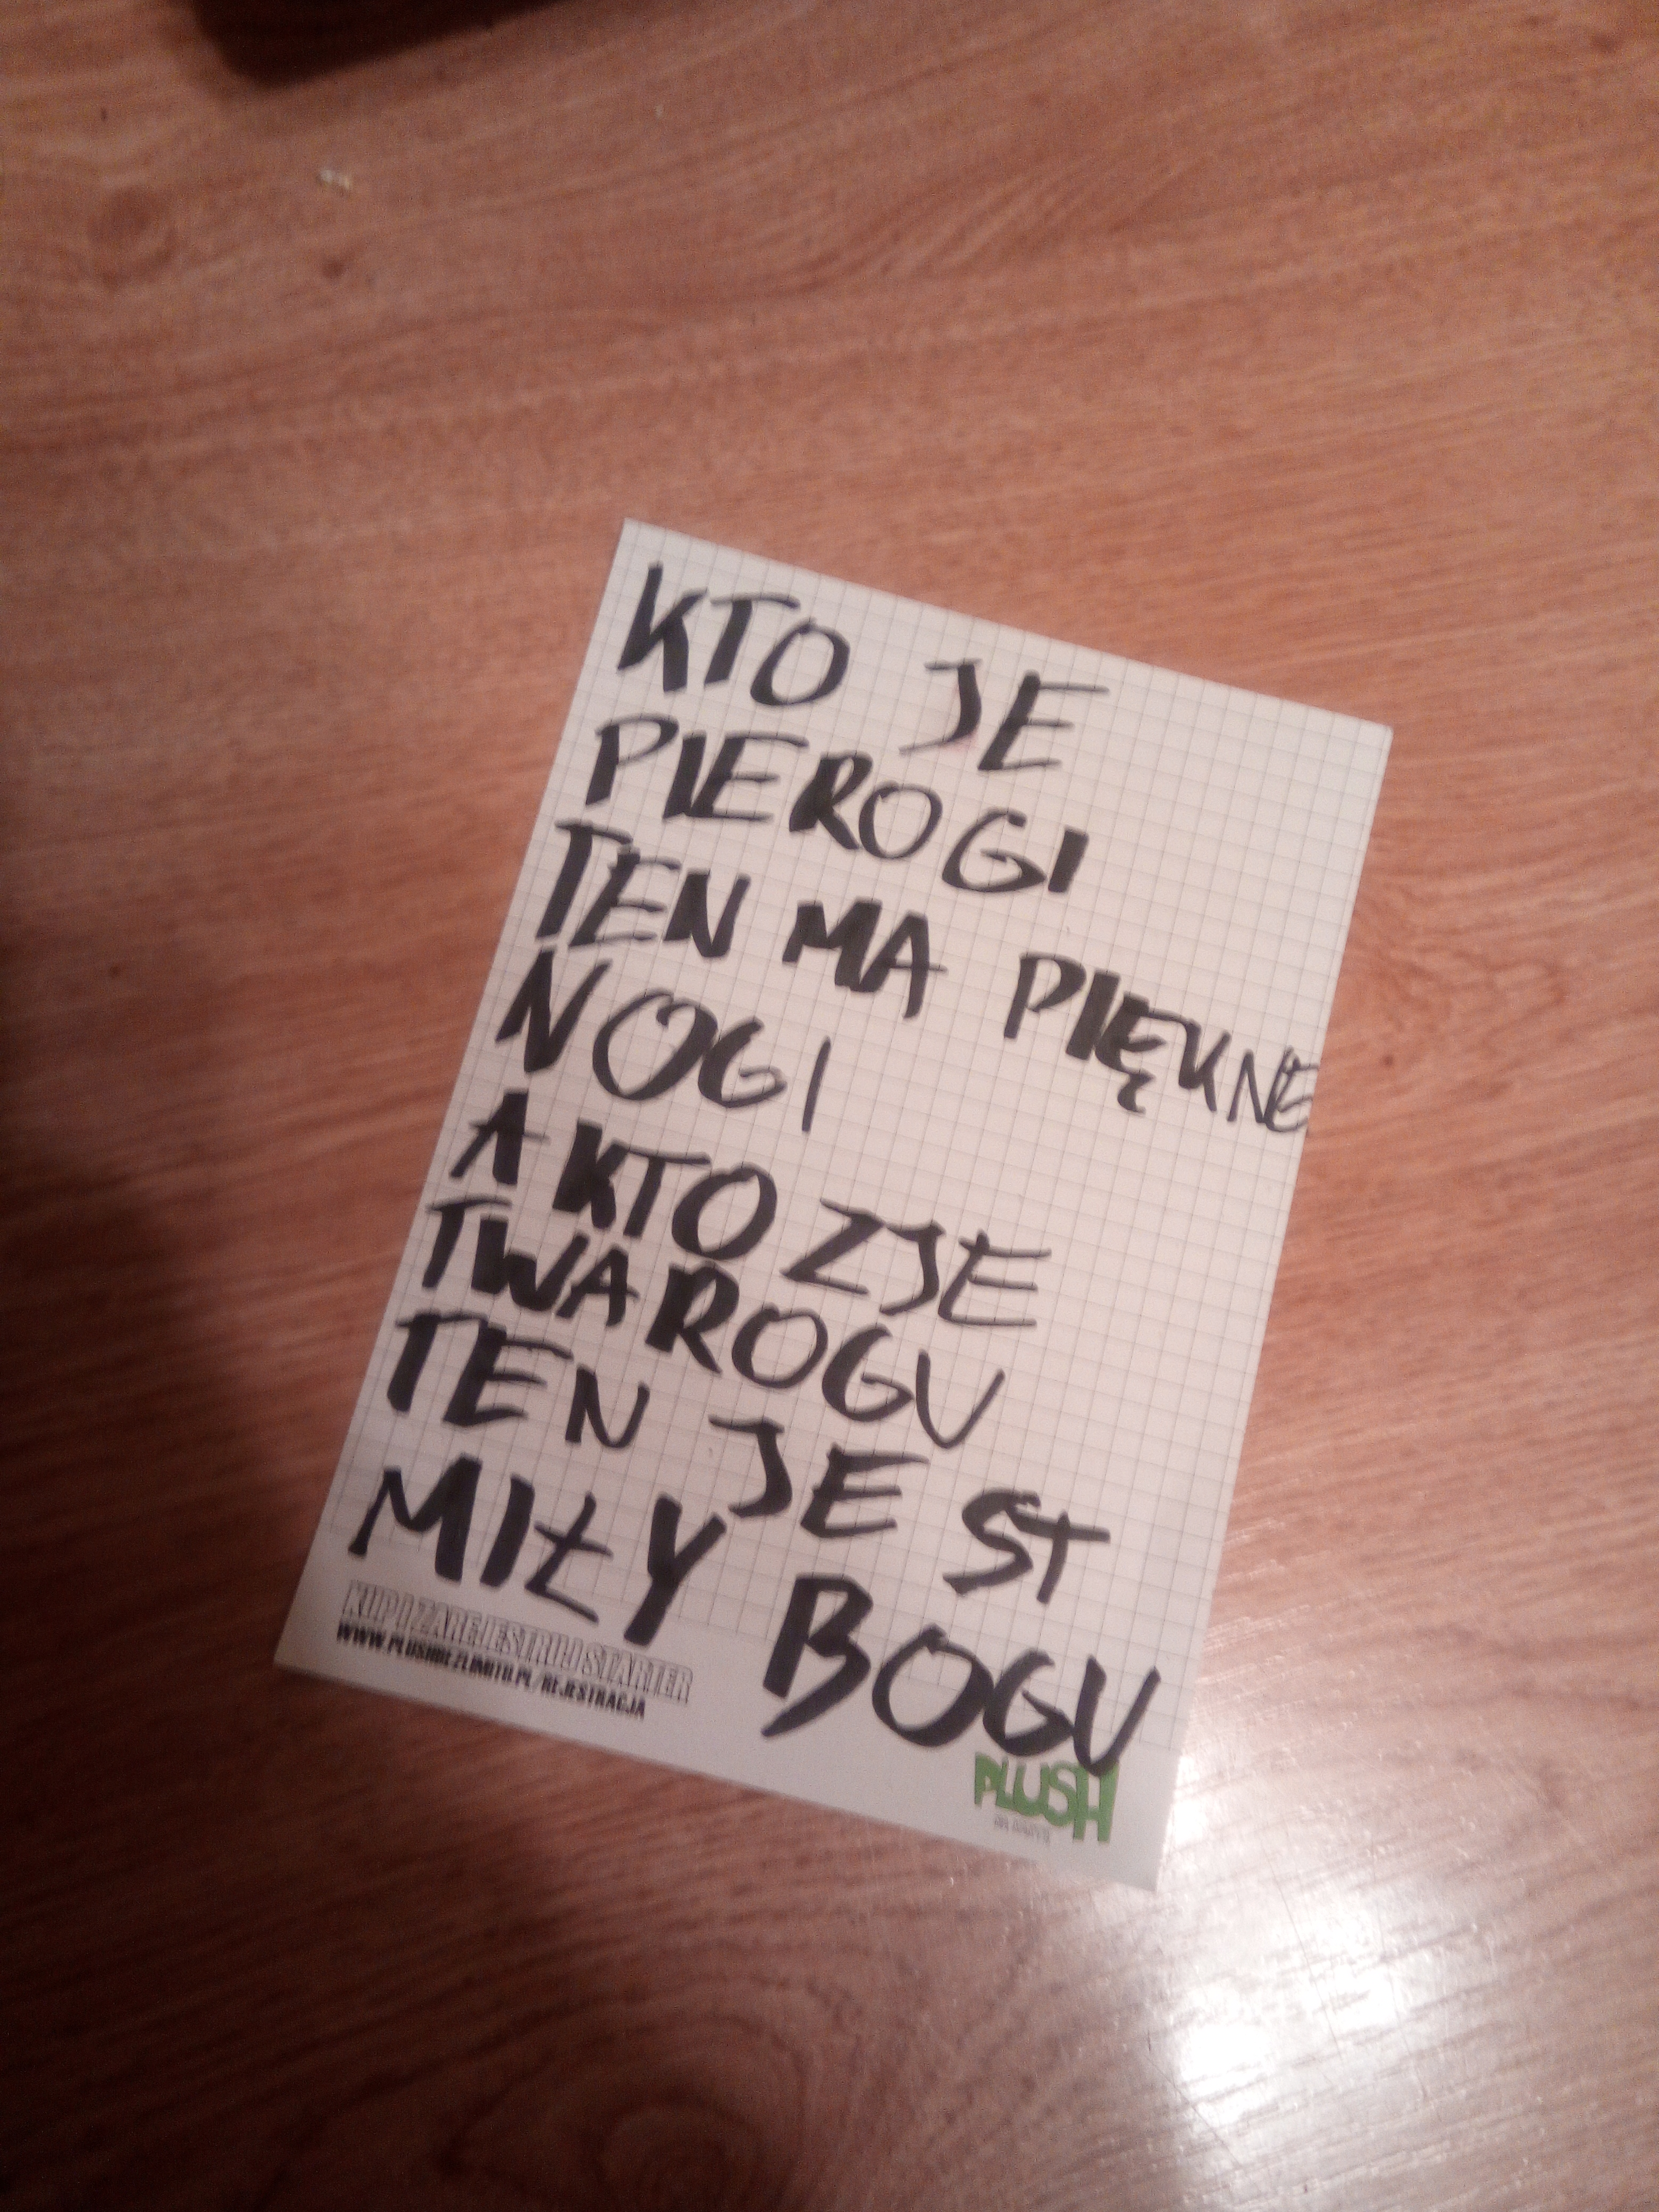 KTO JE
PIEROGI
TEN MA PIĘKNE
NOGI
A KTO ZJE
TWAROGU
TEN JEST
MIŁY BOGU
KUP I ZAREJESTRUJ STARTER
WWW.PLUSHBEZLIMITU.PL/REJESTRACJA
PLUSH